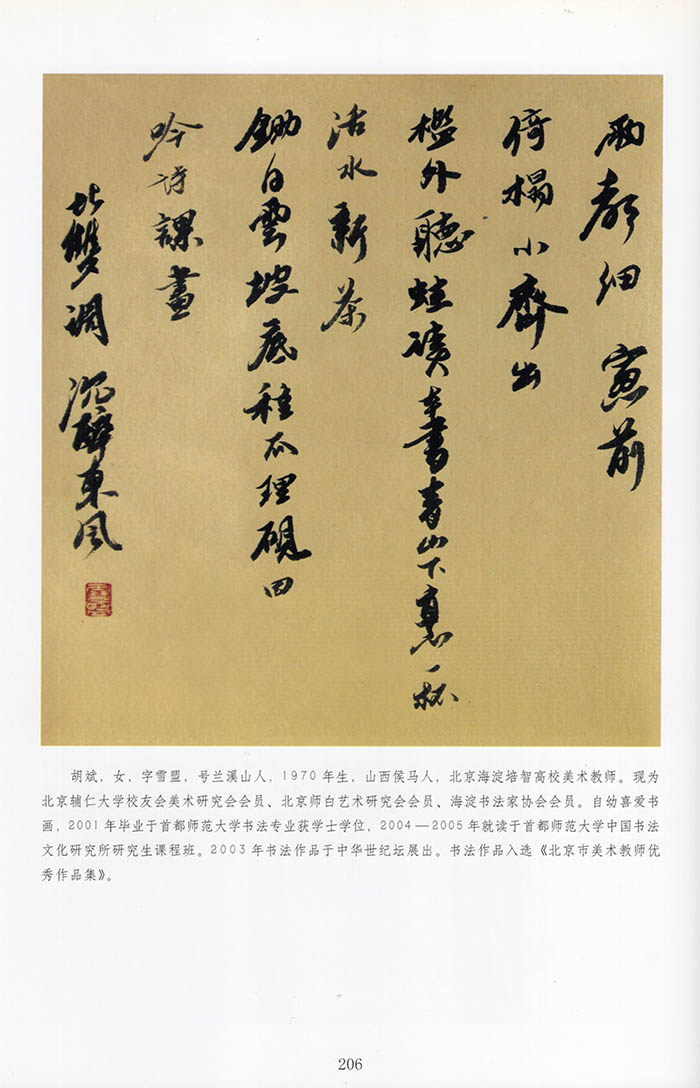 雨 細 窗前
倚榻小齊出
檻外聽蛙讀 書青山下 一杯
活水新茶
鋤白雲坡底種瓜理硯田
吟詩課畫
北雙調 沉醉東風
胡斌，女，字雪盟，号兰溪山人，1970年生，山西侯马人，北京海淀培智高校美术教师。现为
北京辅仁大学校友会美术研究会会员、北京师白艺术研究会会员、海淀书法家协会会员。自幼喜爱书
画，2001年毕业于首都师范大学书法专业获学士学位，2004—2005年就读于首都师范大学中国书法
文化研究所研究生课程班。2003年书法作品于中华世纪坛展出。书法作品入选《北京市美术教师优
秀作品集》。
206